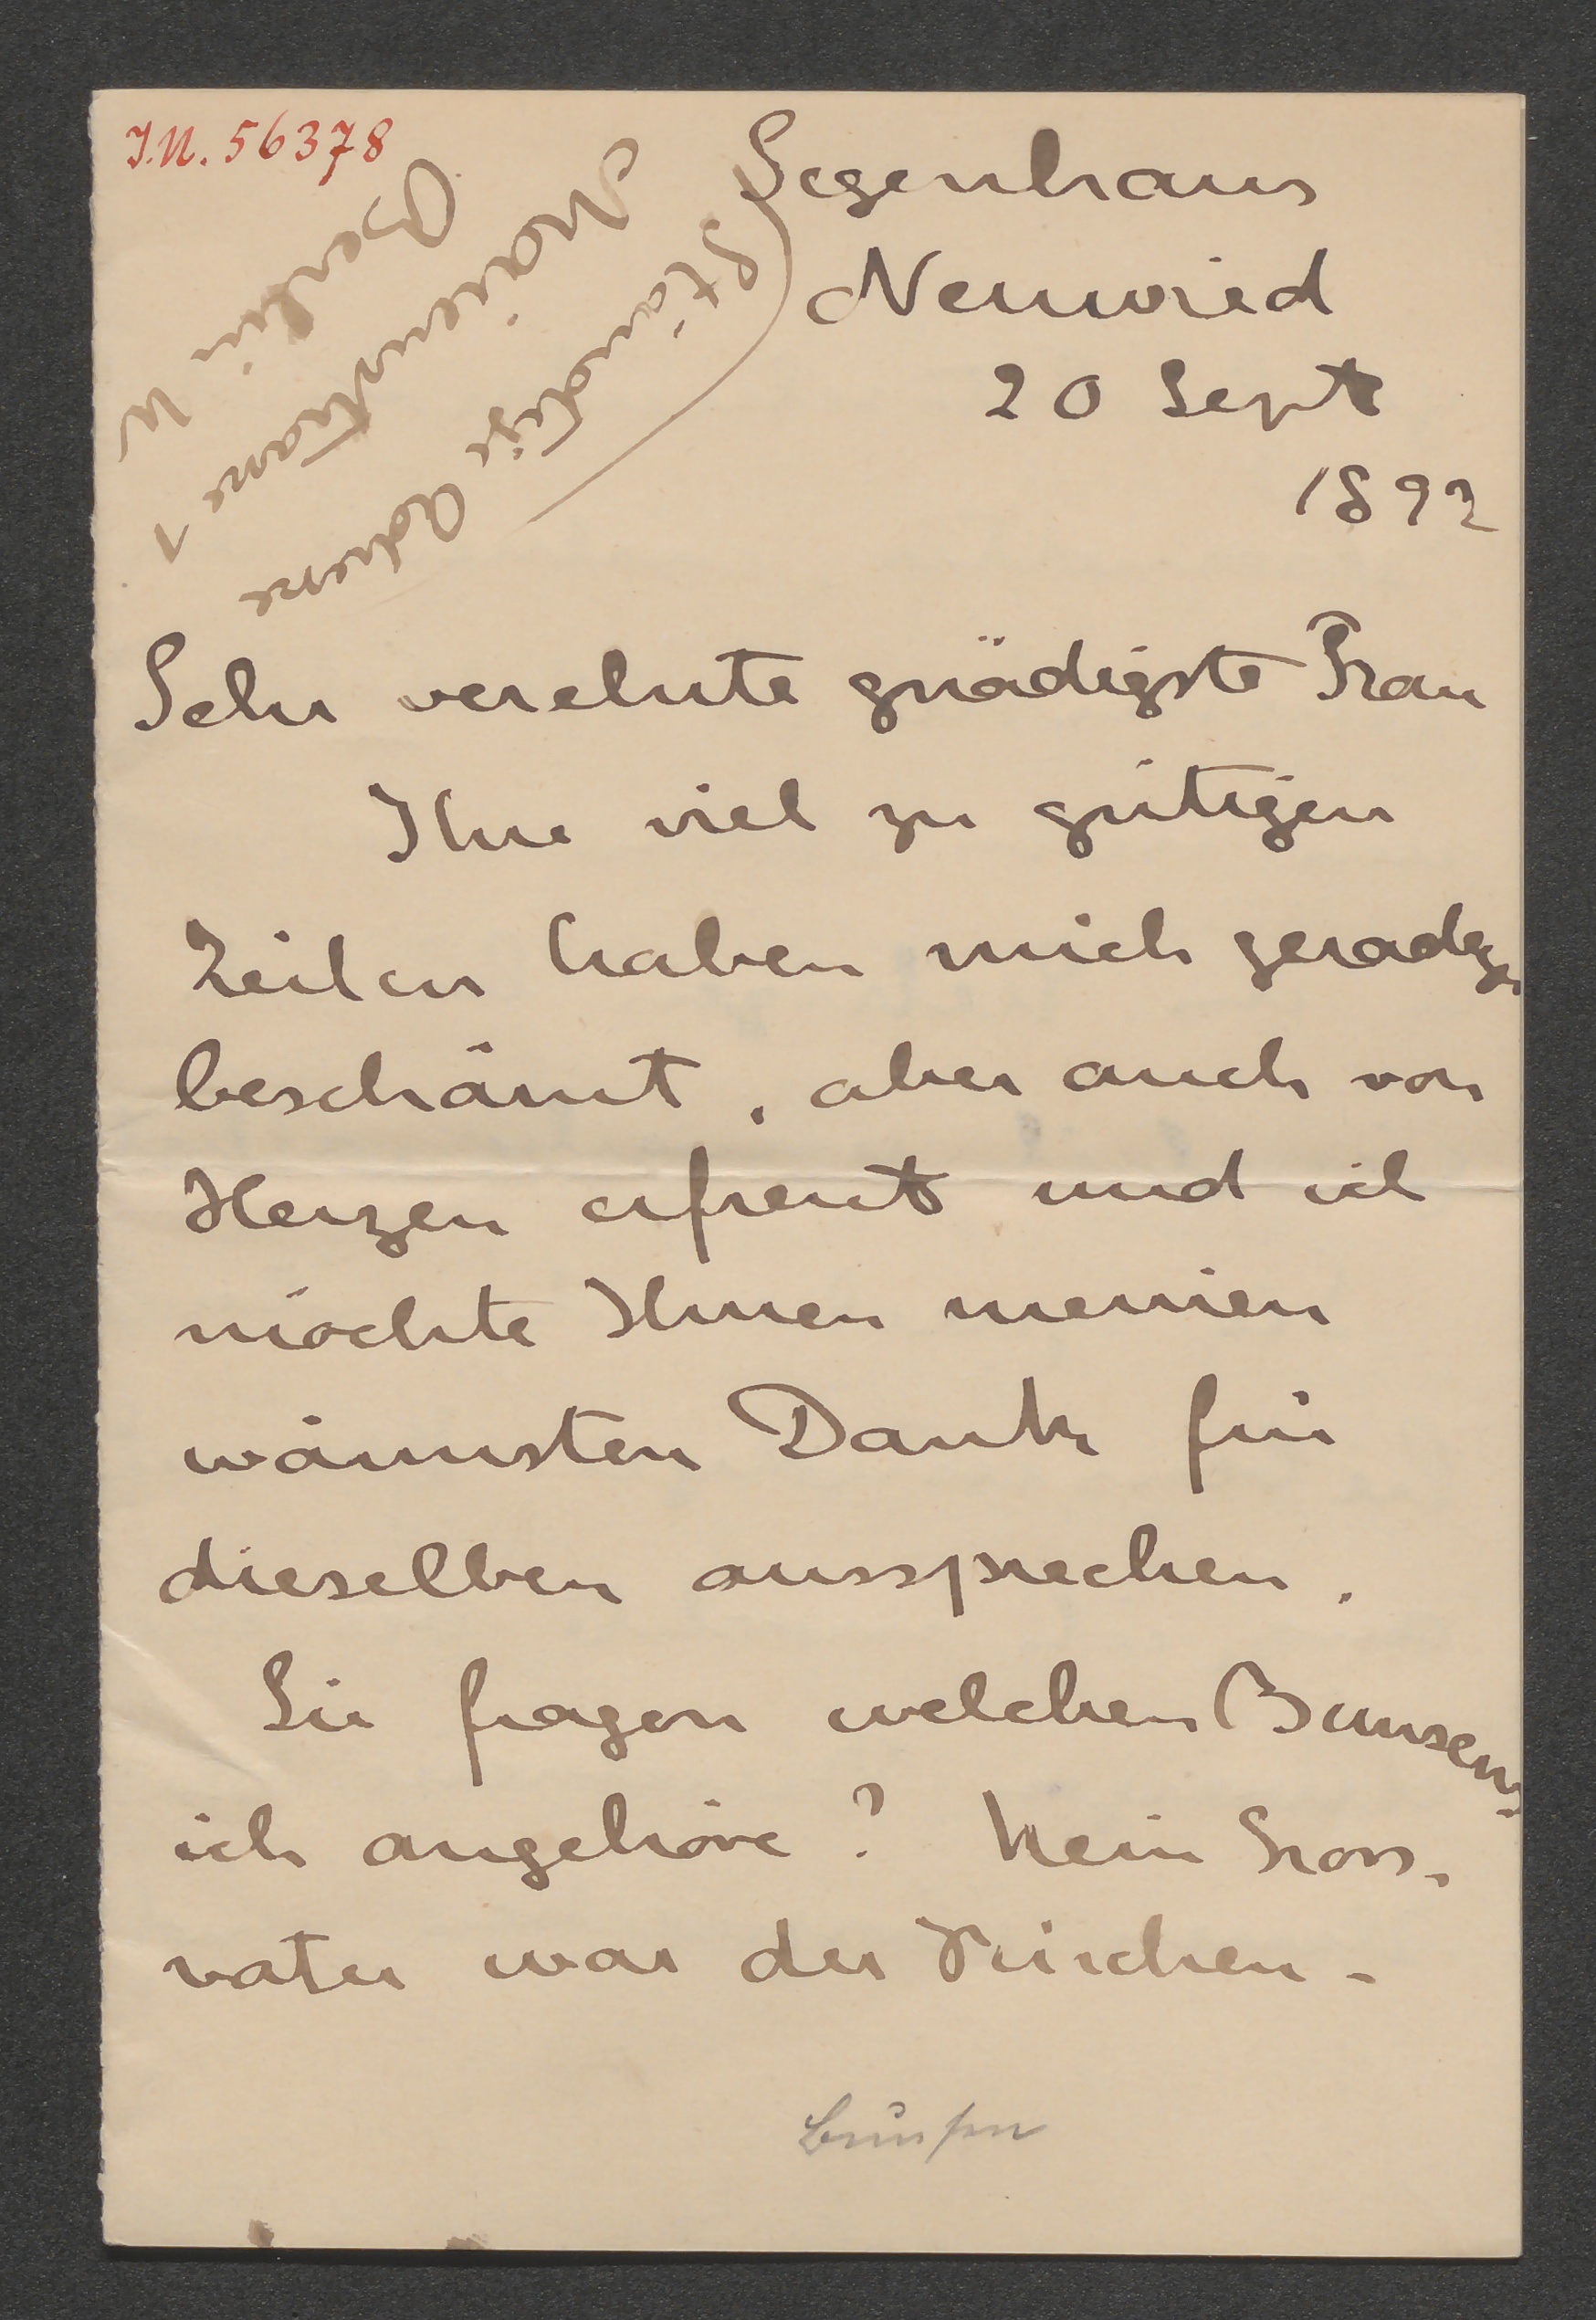 I.N. 56378
Segenhaus
Neuwied
20 Sept
1892
Ständige Adresse
Maienstrasse 1
Berlin W
Sehr verehrte gnädigste Frau
Ihre viel zu gütigen
Zeilen haben mich geradezu
beschämt, aber auch von
Herzen erfreut und ich
möchte Ihnen meinen
wärmsten Dank für
dieselben aussprechen.
Sie fragen welchen Bunsens
ich angehöre? Mein Gross-
vater war der Kirchen-
Bunsen